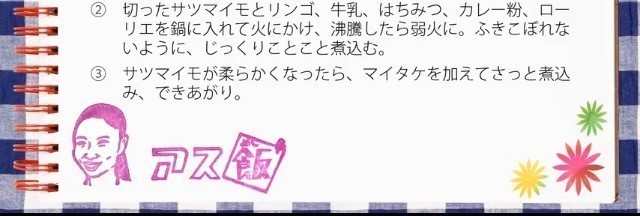 ② 切ったサツマイモとリンゴ、牛乳、はちみつ、カレー粉、ロー
リエを鍋に入れて火にかけ、沸騰したら弱火に。ふきこぼれな
いように、じっくりことこと煮込む。
③ サツマイモが柔らかくなったら、マイタケを加えてさっと煮込
み、できあがり。
アス飯